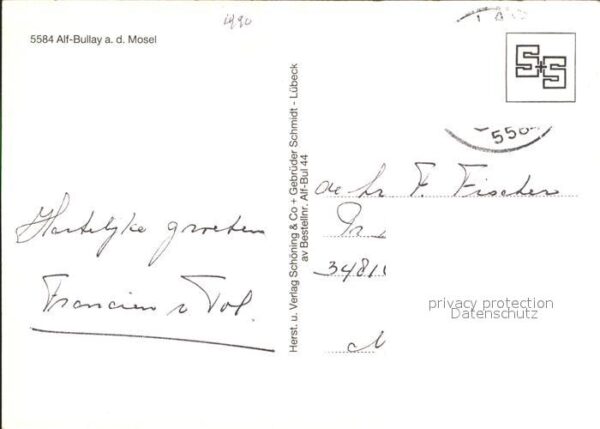 1990
5584 Alf-Bullay a. d. Mosel
S+S
558
Herst. u. Verlag Schöning & Co + Gebrüder Schmidt - Lübeck
av Bestellnr. Alf-Bul 44
Hartelijke groeten
Francien v Tol.
de hr F. Fischer
3481
privacy protection
Datenschutz